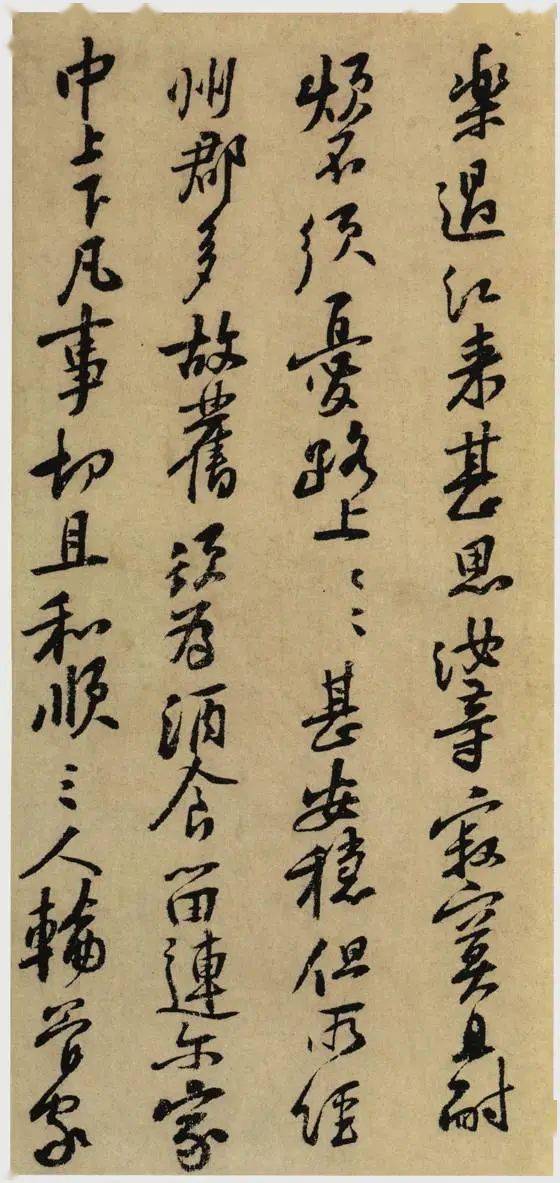 樂過江來甚思汝等寂寞且耐
煩不須憂路上〻〻甚安穩但所經
州郡多故舊須為酒食留連尔家
中上下凡事切且和順三人輪管家